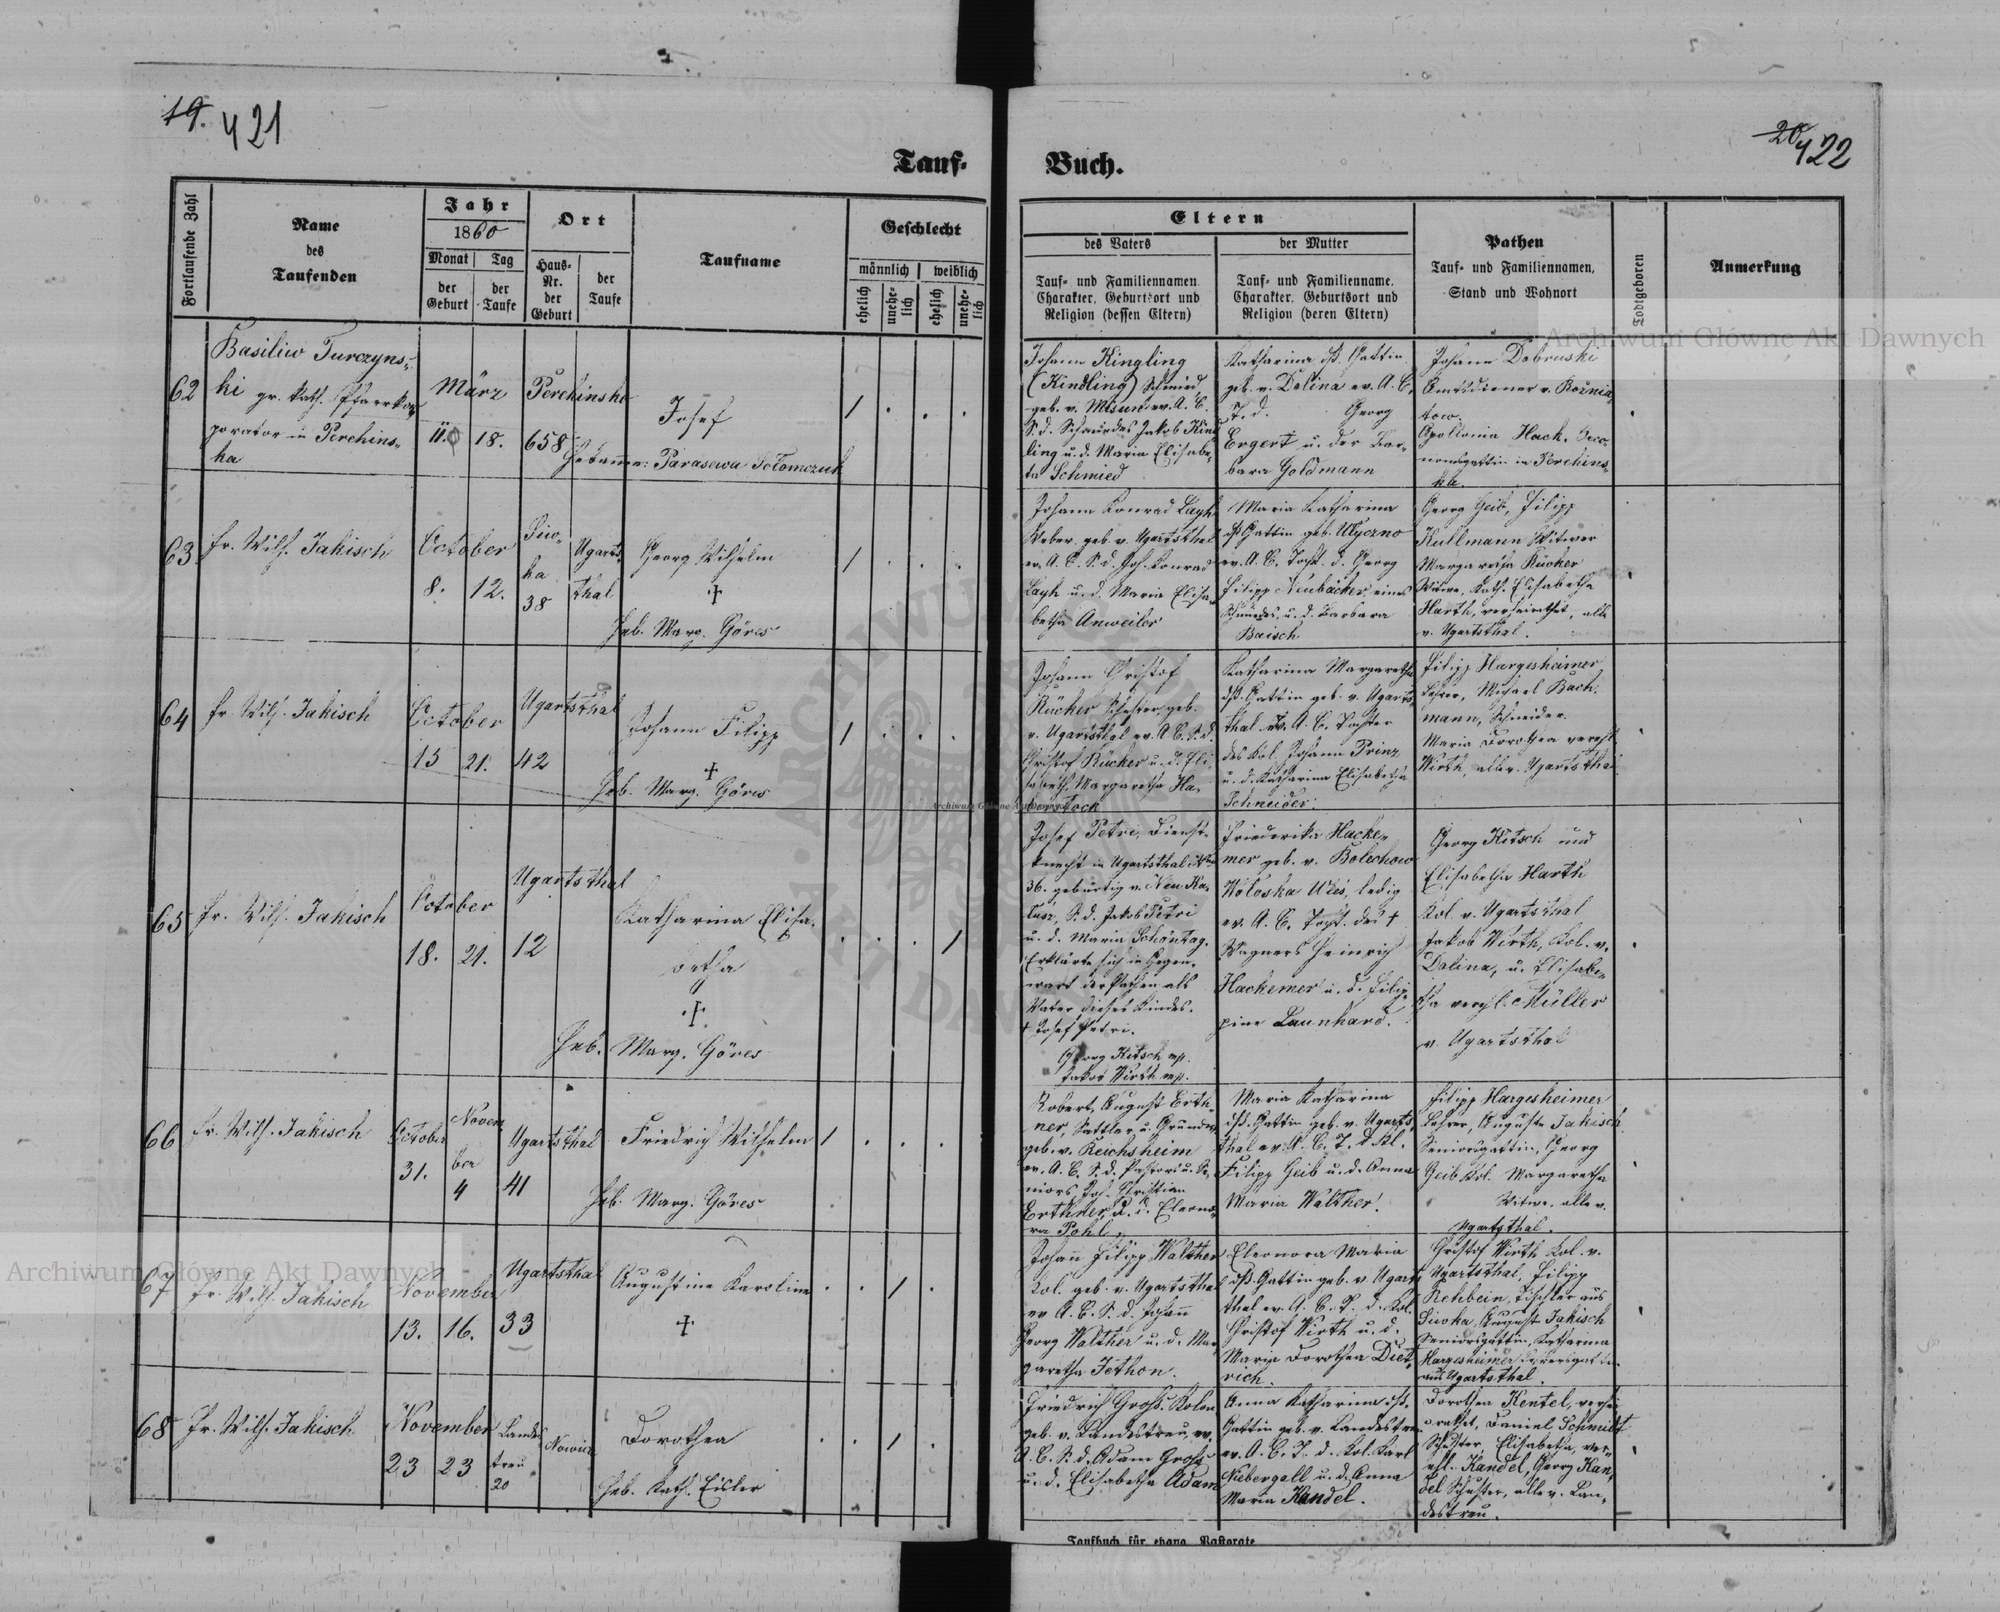 19. 421
20 422
Tauf-
Buch.
Fortlaufende Zahl
Name
des
Taufenden
Jahr
1860
Monat
Tag
der Geburt
der Taufe
Ort
Haus-Nr. der Geburt
der Taufe
Taufname
Geschlecht
männlich
weiblich
ehelich
unehe-lich
ehelich
unehe-lich
Eltern
des Vaters
der Mutter
Tauf- und Familiennamen
Charakter, Geburtsort und
Religion (dessen Eltern)
Tauf- und Familienname.
Charakter, Geburtsort und
Religion (deren Eltern)
Pathen
Tauf- und Familiennamen,
Stand und Wohnort
Todtgeboren
Anmerkung
62
Basiliw Turczyns-
ki gr. kath. Pfarrkoo-
porator in Perehins-
ka
März
11. 18.
Perehinsko
658
Josef
Hebamme: Parasewa Sołomczuk
Johann Kingling
(Kindling) Schmied
geb. v. Misun ev. A. C.
S. d. Schmiedes Jakob Kind-
ling u. d. Maria Elisabe-
ta Schmied
Katharina dß. Gattin
geb. v. Dolina ev. A. C.
T. d. Georg
Engert u. der Bar-
bara Goldmann
Johann Dobruski
Amtsdiener v. Rożnia-
tow.
Apollonia Hach, Oeco-
nomsgattin in Perehins-
ka.
63
Fr. Wilh. Jakisch
October
8. 12.
Siw-
ka
38
Ugarts-
thal
Georg Wilhelm
†
Heb. Marg. Göres
Johann Konrad Layh
Weber geb. v. Ugartsthal
ev. A. C. S. d. Joh. Konrad
Layh u. d. Maria Elisa-
betha Anweiler
Maria Katharina
dß. Gattin geb. Ugerzno
ev. A. C. Toch. d. Georg
Filipp Neubäcker, eines
Schmiedes, u. d. Barbara
Baisch
Georg Geib, Filipp
Kullmann Witwer
Margaretha Rücker
Witwe, Kath. Elisabetha
Harth, verheirathet, alle
v. Ugartsthal.
64
Fr. Wilh. Jakisch
October
15 21.
Ugartsthal
42
Johann Filipp
†
Heb. Marg. Göres
Johann Christof
Rücker Schuster, geb.
v. Ugartsthal ev. A. C. S. d.
Christof Rücker u. d. Eli-
sabeth Margaretha Ha-
berstock
Katharina Margaretha
dß. Gattin geb. v. Ugarts-
thal ev. A. C. Tochter
des Kol. Johann Prinz
u. d. Katharina Elisabetha
Schneider.
Filipp Hargesheimer,
Lehrer, Michael Bach-
mann, Schneider.
Maria Dorothea vereh.
Wirth, alle v. Ugartsthal
65
Fr. Wilh. Jakisch
October
18. 21.
Ugartsthal
12
Katharina Elisa-
betha
†
Heb. Marg. Göres
Josef Petri, Dienst-
knecht in Ugartsthal Nr
36. gebürtig v. Neu Ka-
lusz, S. d. Jakob Petri
u. d. Maria Schöntag.
Erklärte sich in Gegen-
wart der Pathen als
Vater dieses Kindes.
† Josef Petri.
Georg Kitsch mp.
Jakob Wirth mp.
Friederika Hacke-
mer geb. v. Bolechow
Wołoska Wieś, ledig
ev. A. C. Tocht. des †
Wagners Heinrich
Hackemer u. d. Filip-
pine Launhard.
Georg Kitsch und
Elisabetha Harth
Kol. v. Ugartsthal
Jakob Wirth, Kol. v.
Dolina, u. Elisabe-
tha verehl. Müller
v. Ugartsthal
66
Fr. Wilh. Jakisch
October
31.
Novem
ber
4
Ugartsthal
41
Friedrich Wilhelm
Heb. Marg. Göres
Robert August Erth-
ner, Sattler u. Grundw.
geb. v. Reichsheim
ev. A. C. S. d. Pastors u. Se-
niors Joh. Christian
Erthner u. d. Eleono-
ra Pohl.
Maria Katharina
dß. Gattin geb. v. Ugarts-
thal ev. A. C. T. d. Kl.
Filipp Geib u. d. Anna
Maria Walther.
Filipp Hargesheimer
Lehrer, Auguste Jakisch
Seniorsgattin, Georg
Geib Kol. Margaretha
Witwe, alle v.
Ugartsthal.
67
Fr. Wilh. Jakisch
November
13. 16.
Ugartsthal
33
Augustine Karoline
†
Johann Filipp Walther
Kol. geb. v. Ugartsthal
ev A. C. S. d. Johann
Georg Walther u. d. Mar-
garetha Jethon.
Eleonora Maria
dß. Gattin geb. v Ugarts
thal ev. A. C. T. d. Kol.
Christof Wirth u. d.
Maria Dorothea Diet-
rich.
Christof Wirth Kol. v.
Ugartsthal, Filipp
Rehbein, Tischler aus
Siwka, August. Jakisch
Seniorsgattin, Katharina
Hargesheimer
aus Ugartsthal.
68
Fr. Wilh. Jakisch
November
23 23
Landes
treu
20
Nowica
Dorothea
Heb. Kath. Eisler
Friedrich Groß. Kolon
geb. v. Landestreu, ev.
A. C. S. d. Adam Groß
u. d. Elisabetha Adam
Anna Katharina dß.
Gattin geb. v. Landestreu
ev. A. C. T. d. Kol. Karl
Niebergall u. d. Anna
Maria Kandel.
Dorothea Kentel, verhei-
rathet, Daniel Schmidt
Schuster, Elisabetha, ver-
ehl. Kandel, Georg Kan-
del Schuster, alle v. Lan-
destreu.
Taufbuch für evang. Pastorate
Archiwum Główne Akt Dawnych
Archiwum Główne Akt Dawnych
Archiwum Główne Akt Dawnych